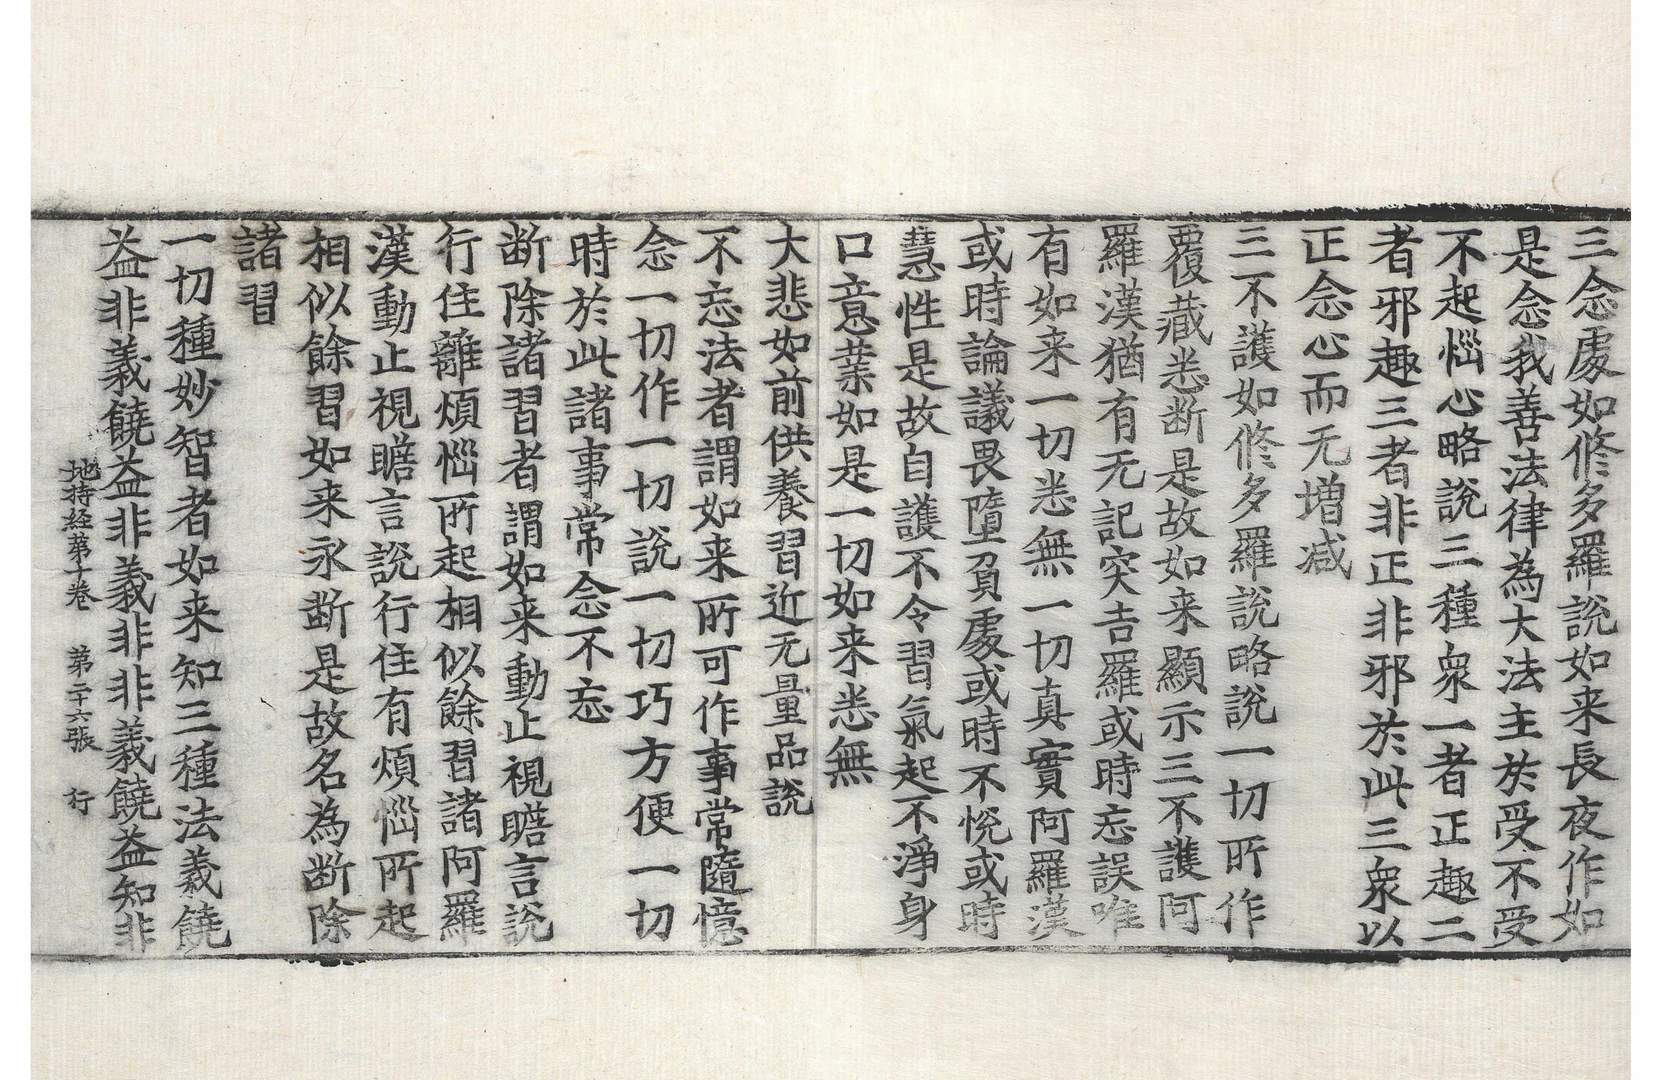 三念處如修多羅說如来長夜作如
是念我善法律為大法主於受不受
不起惱心略說三種衆一者正趣二
者邪趣三者非正非邪於此三衆以
正念心而无增减
三不護如修多羅說略說一切所作
覆藏悉断是故如来顯示三不護阿
羅漢猶有无記突吉羅或時忘誤唯
有如来一切悉無一切真實阿羅漢
或時論議畏墮負處或時不悅或時
慧性是故自護不令習氣起不淨身
口意業如是一切如来悉無
大悲如前供養習近无量品說
不忘法者謂如来所可作事常隨憶
念一切作一切說一切巧方便一切
時於此諸事常念不忘
断除諸習者謂如来動止視瞻言說
行住離煩惱所起相似餘習諸阿羅
漢動止視瞻言說行住有煩惱所起
相似餘習如来永断是故名為断除
諸習
一切種妙智者如来知三種法義饒
益非義饒益非義非非義饒益知非
地持経苐十卷 第二十六張 行